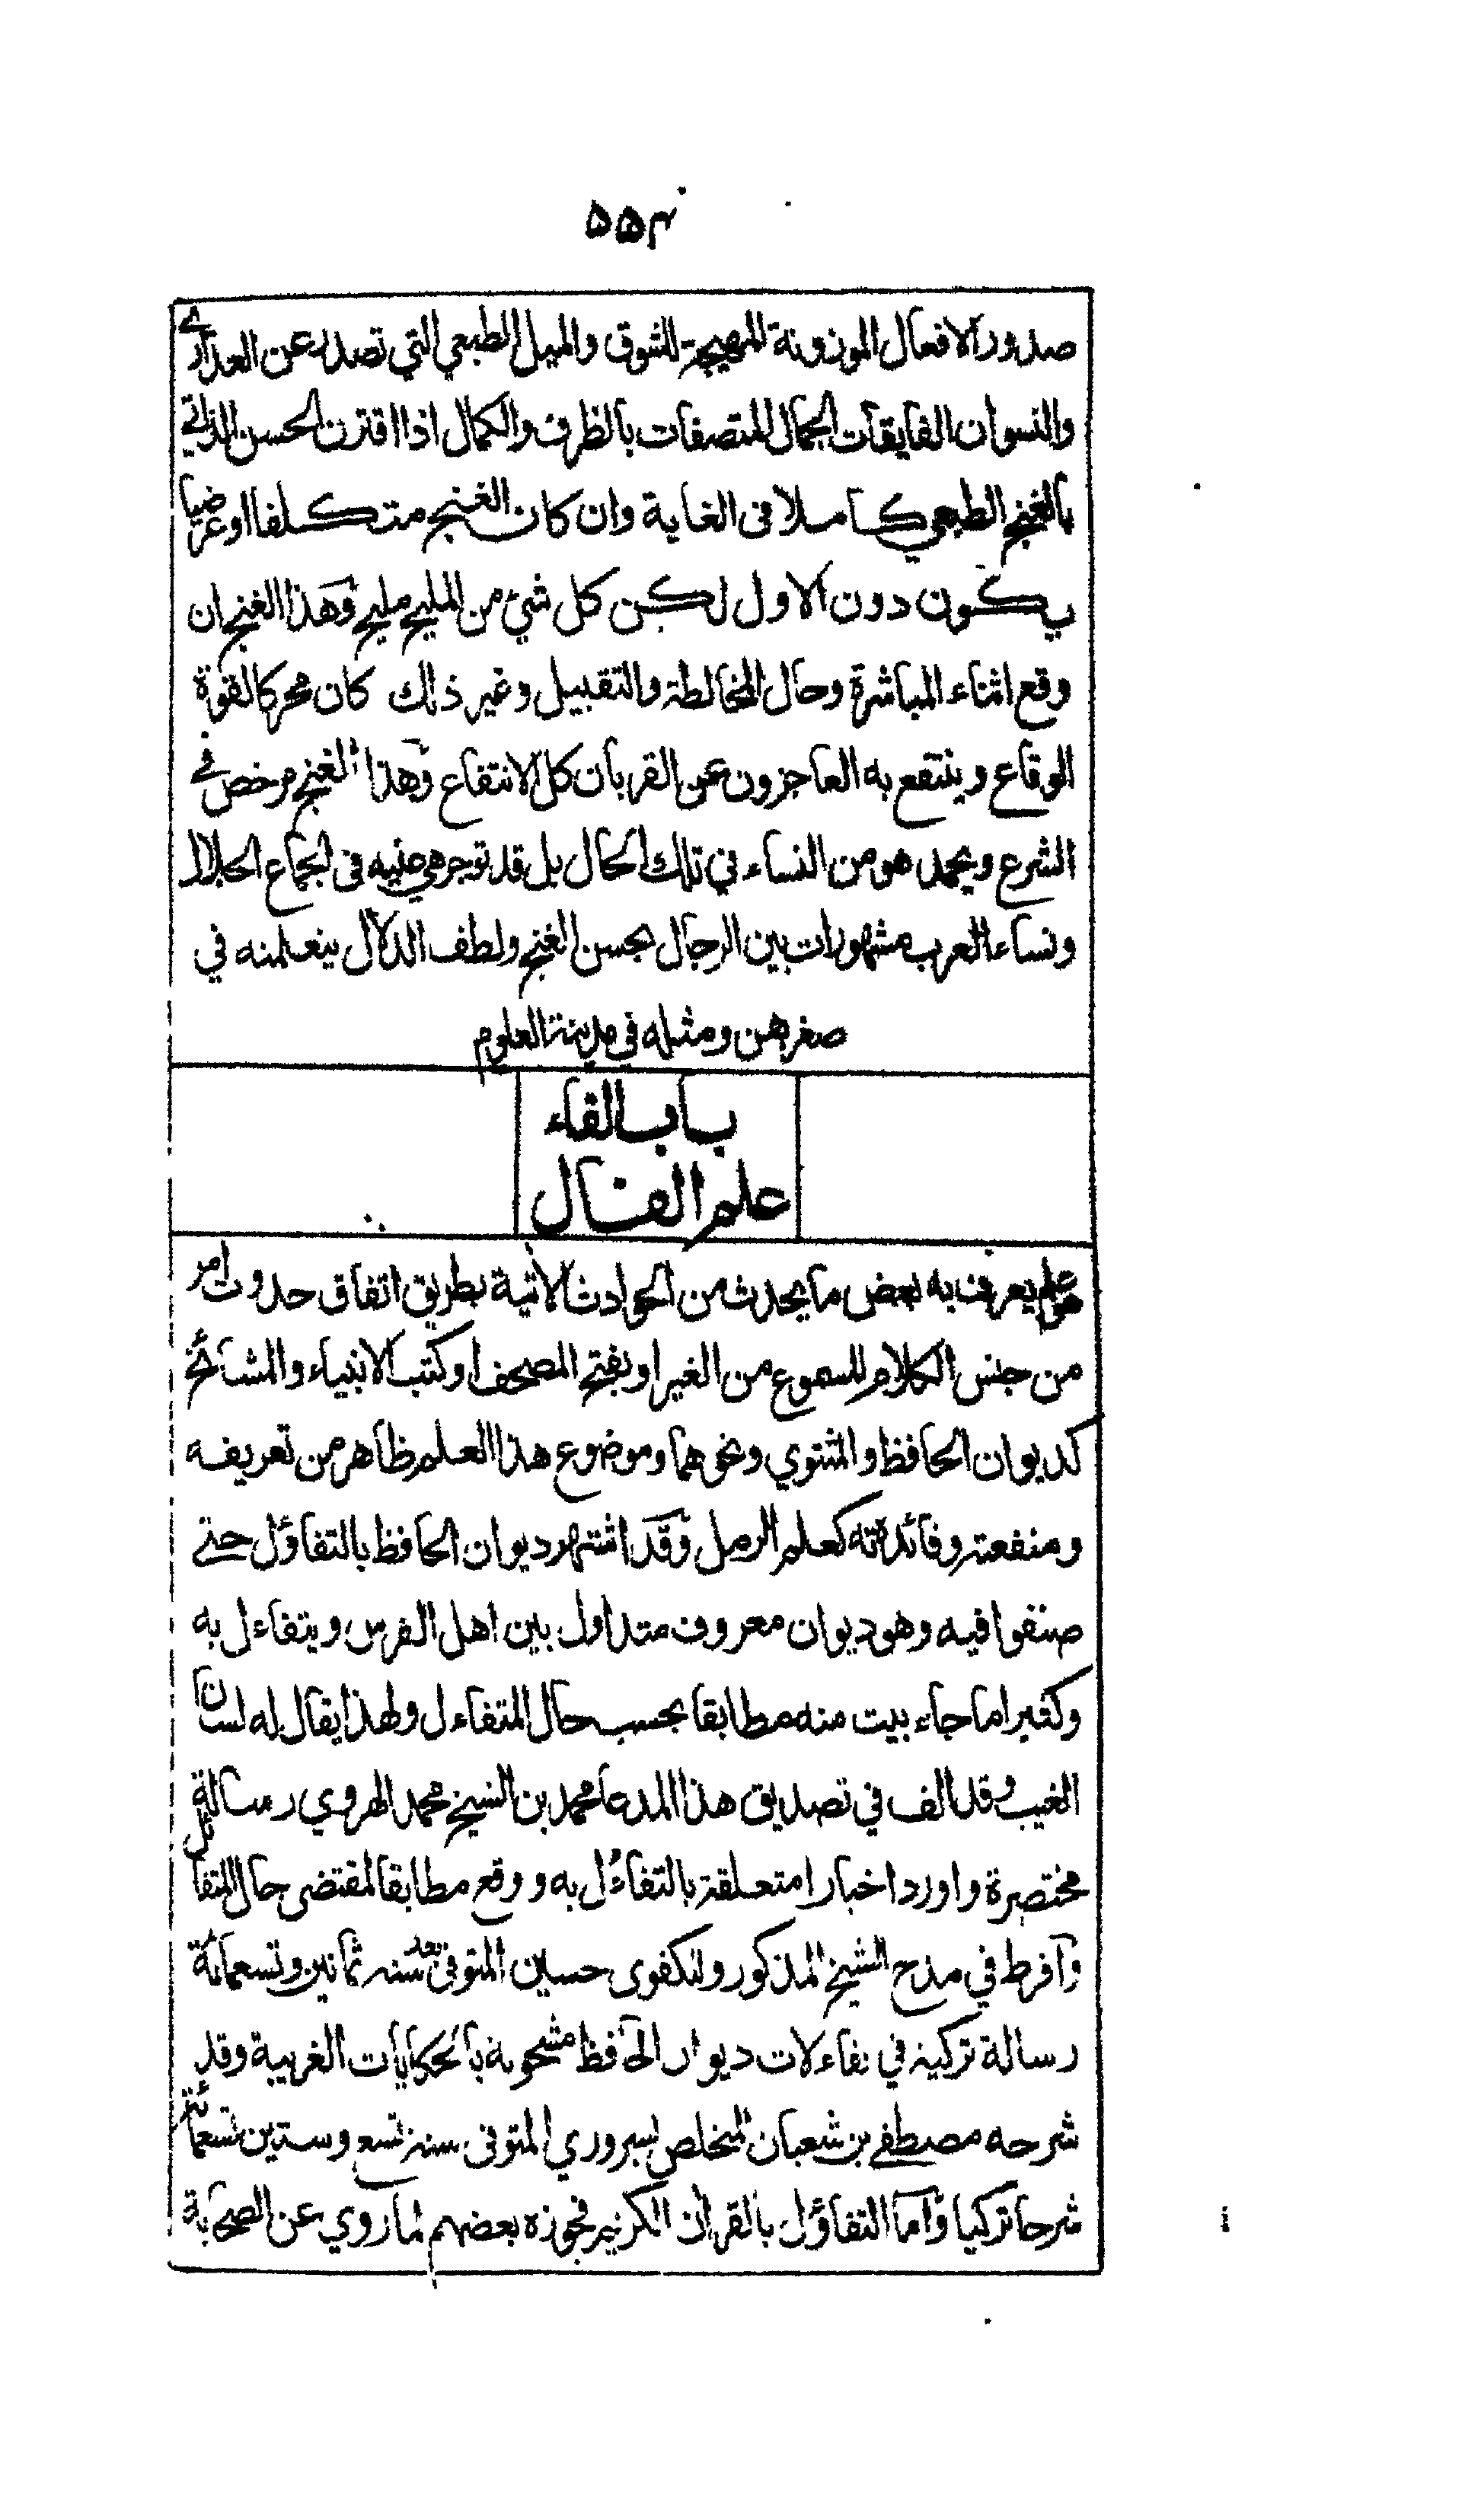 ۵۵۴
صدور الافعال الموزونة المهيجة للشوق والميل الطبعي التي تصدر عن العذارى
والنسوان الفايقات الجمال المتصفات بالظرف والكمال اذا اقترن الحسن الذاتي
بالغنج الطبعي كاملا في الغاية وان كان الغنج متكلفا او عرضيا
يكون دون الاول لكن كل شئ من المليح مليح وهذا الغنج ان
وقع اثناء المباشرة وحال المخالطة والتقبيل وغير ذلك كان محركا لقوة
الوقاع وينتفع به العاجزون عن القربان كل الانتفاع وهذا الغنج مرخص في
الشرع ويحمد هو من النساء في تلك الحال بل قد توجر هي عليه في الجماع الحلال
ونساء العرب مشهورات بين الرجال بحسن الغنج ولطف الدلال يتعلمنه في
صغرهن ومثله في مدينة العلوم
باب الفاء
علم الفال
هو علم يعرف به بعض ما يحدث من الحوادث الآتية بطريق اتفاق حدوث امر
من جنس الكلام المسموع من الغير او بفتح المصحف او كتب الانبياء والمشائخ
كديوان الحافظ والمثنوي ونحوهما وموضوع هذا العلم ظاهر من تعريفه
ومنفعته وفائدته كعلم الرمل وقد اشتهر ديوان الحافظ بالتفاؤل حتى
صنفوا فيه وهو ديوان معروف متداول بين اهل الفرس ويتفاءل به
وكثيرا ما جاء بيت منه مطابقا بحسب حال المتفاءل ولهذا يقال له لسان
الغيب وقد الف في تصديق هذا المدعا محمد بن الشيخ محمد الهروي رسالة
مختصرة واورد اخبارا متعلقة بالتفاءل به ووقع مطابقا لمقتضى حال المتفائل
وافرط في مدح الشيخ المذكور ولكفوى حسين المتوفى بعد سنه ثمانين وتسعمائة
رسالة تركية في تفاءلات ديوان الحافظ مشحونة بالحكايات الغريبة وقد
شرحه مصطفى بن شعبان المتخلص بسروري المتوفى سنة تسع وستين تسعمائة
شرحا تركيا واما التفاؤل بالقرآن الكريم فجوزه بعضهم لما روي عن الصحابة